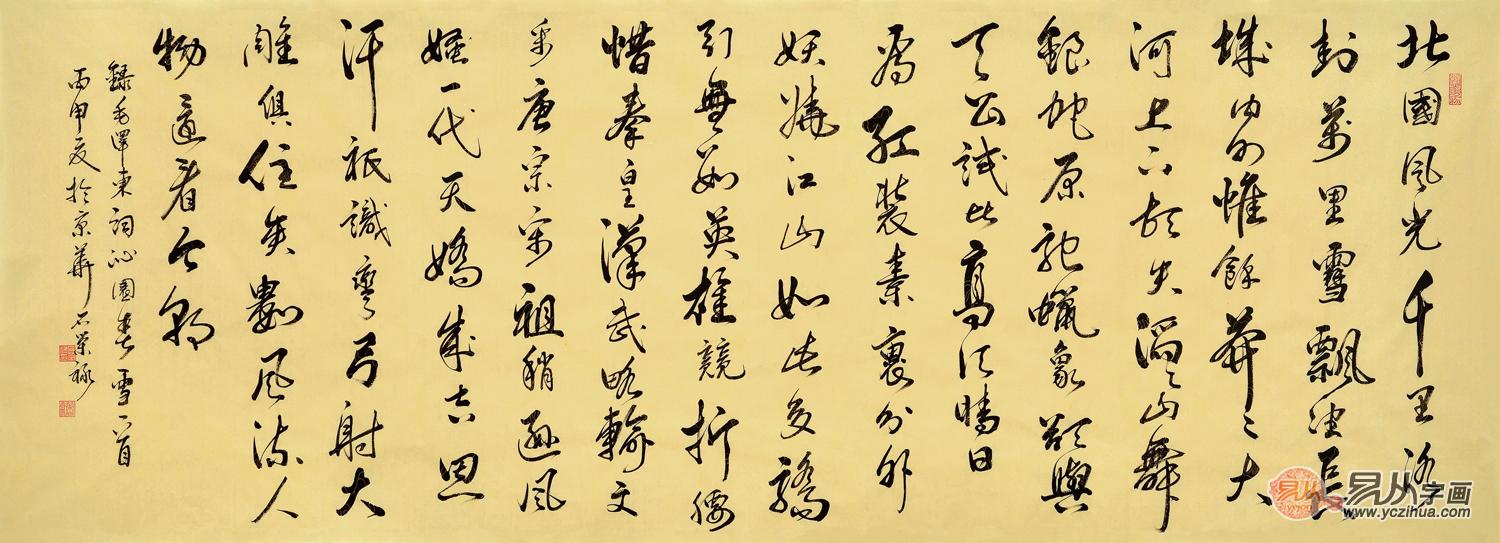 北國風光千里冰
封萬里雪飄望長
城内外惟餘莽〻大
河上下頓失滔〻山舞
銀蛇原馳蠟象欲與
天公試比高須晴日
看紅裝素裹分外
妖嬈江山如此多嬌
引無數英雄競折腰
惜秦皇漢武略輸文
采唐宗宋祖稍遜風
騷一代天驕成吉思
汗祇識彎弓射大
雕俱往矣數風流人
物還看今朝
錄毛澤東詞沁園春雪一首
丙申夏於京華石榮祿
易从字画
www.yczihua.com